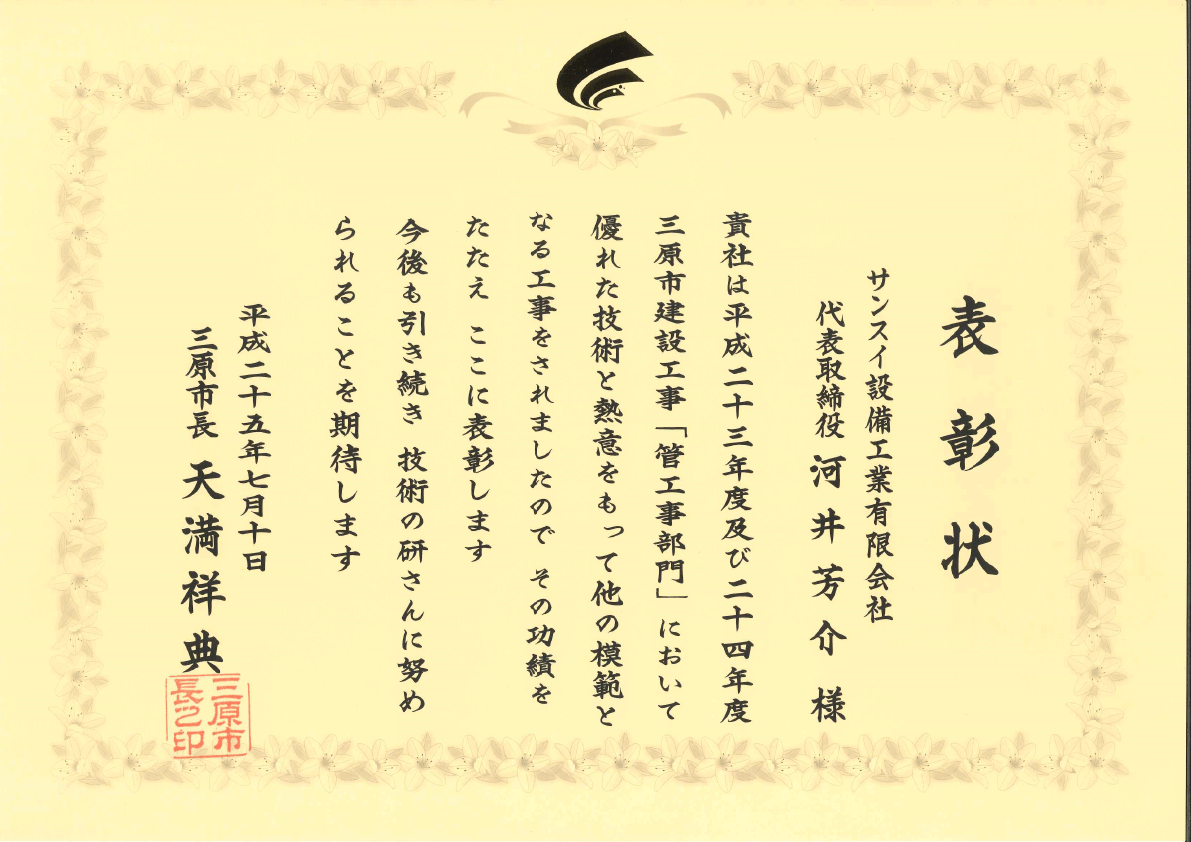 表彰状
サンスイ設備工業有限会社
代表取締役 河井芳介 様
貴社は平成二十三年度及び二十四年度
三原市建設工事「管工事部門」において
優れた技術と熱意をもって他の模範と
なる工事をされましたので その功績を
たたえ ここに表彰します
今後も引き続き 技術の研さんに努め
られることを期待します
平成二十五年七月十日
三原市長 天満祥典
三原市
長之印